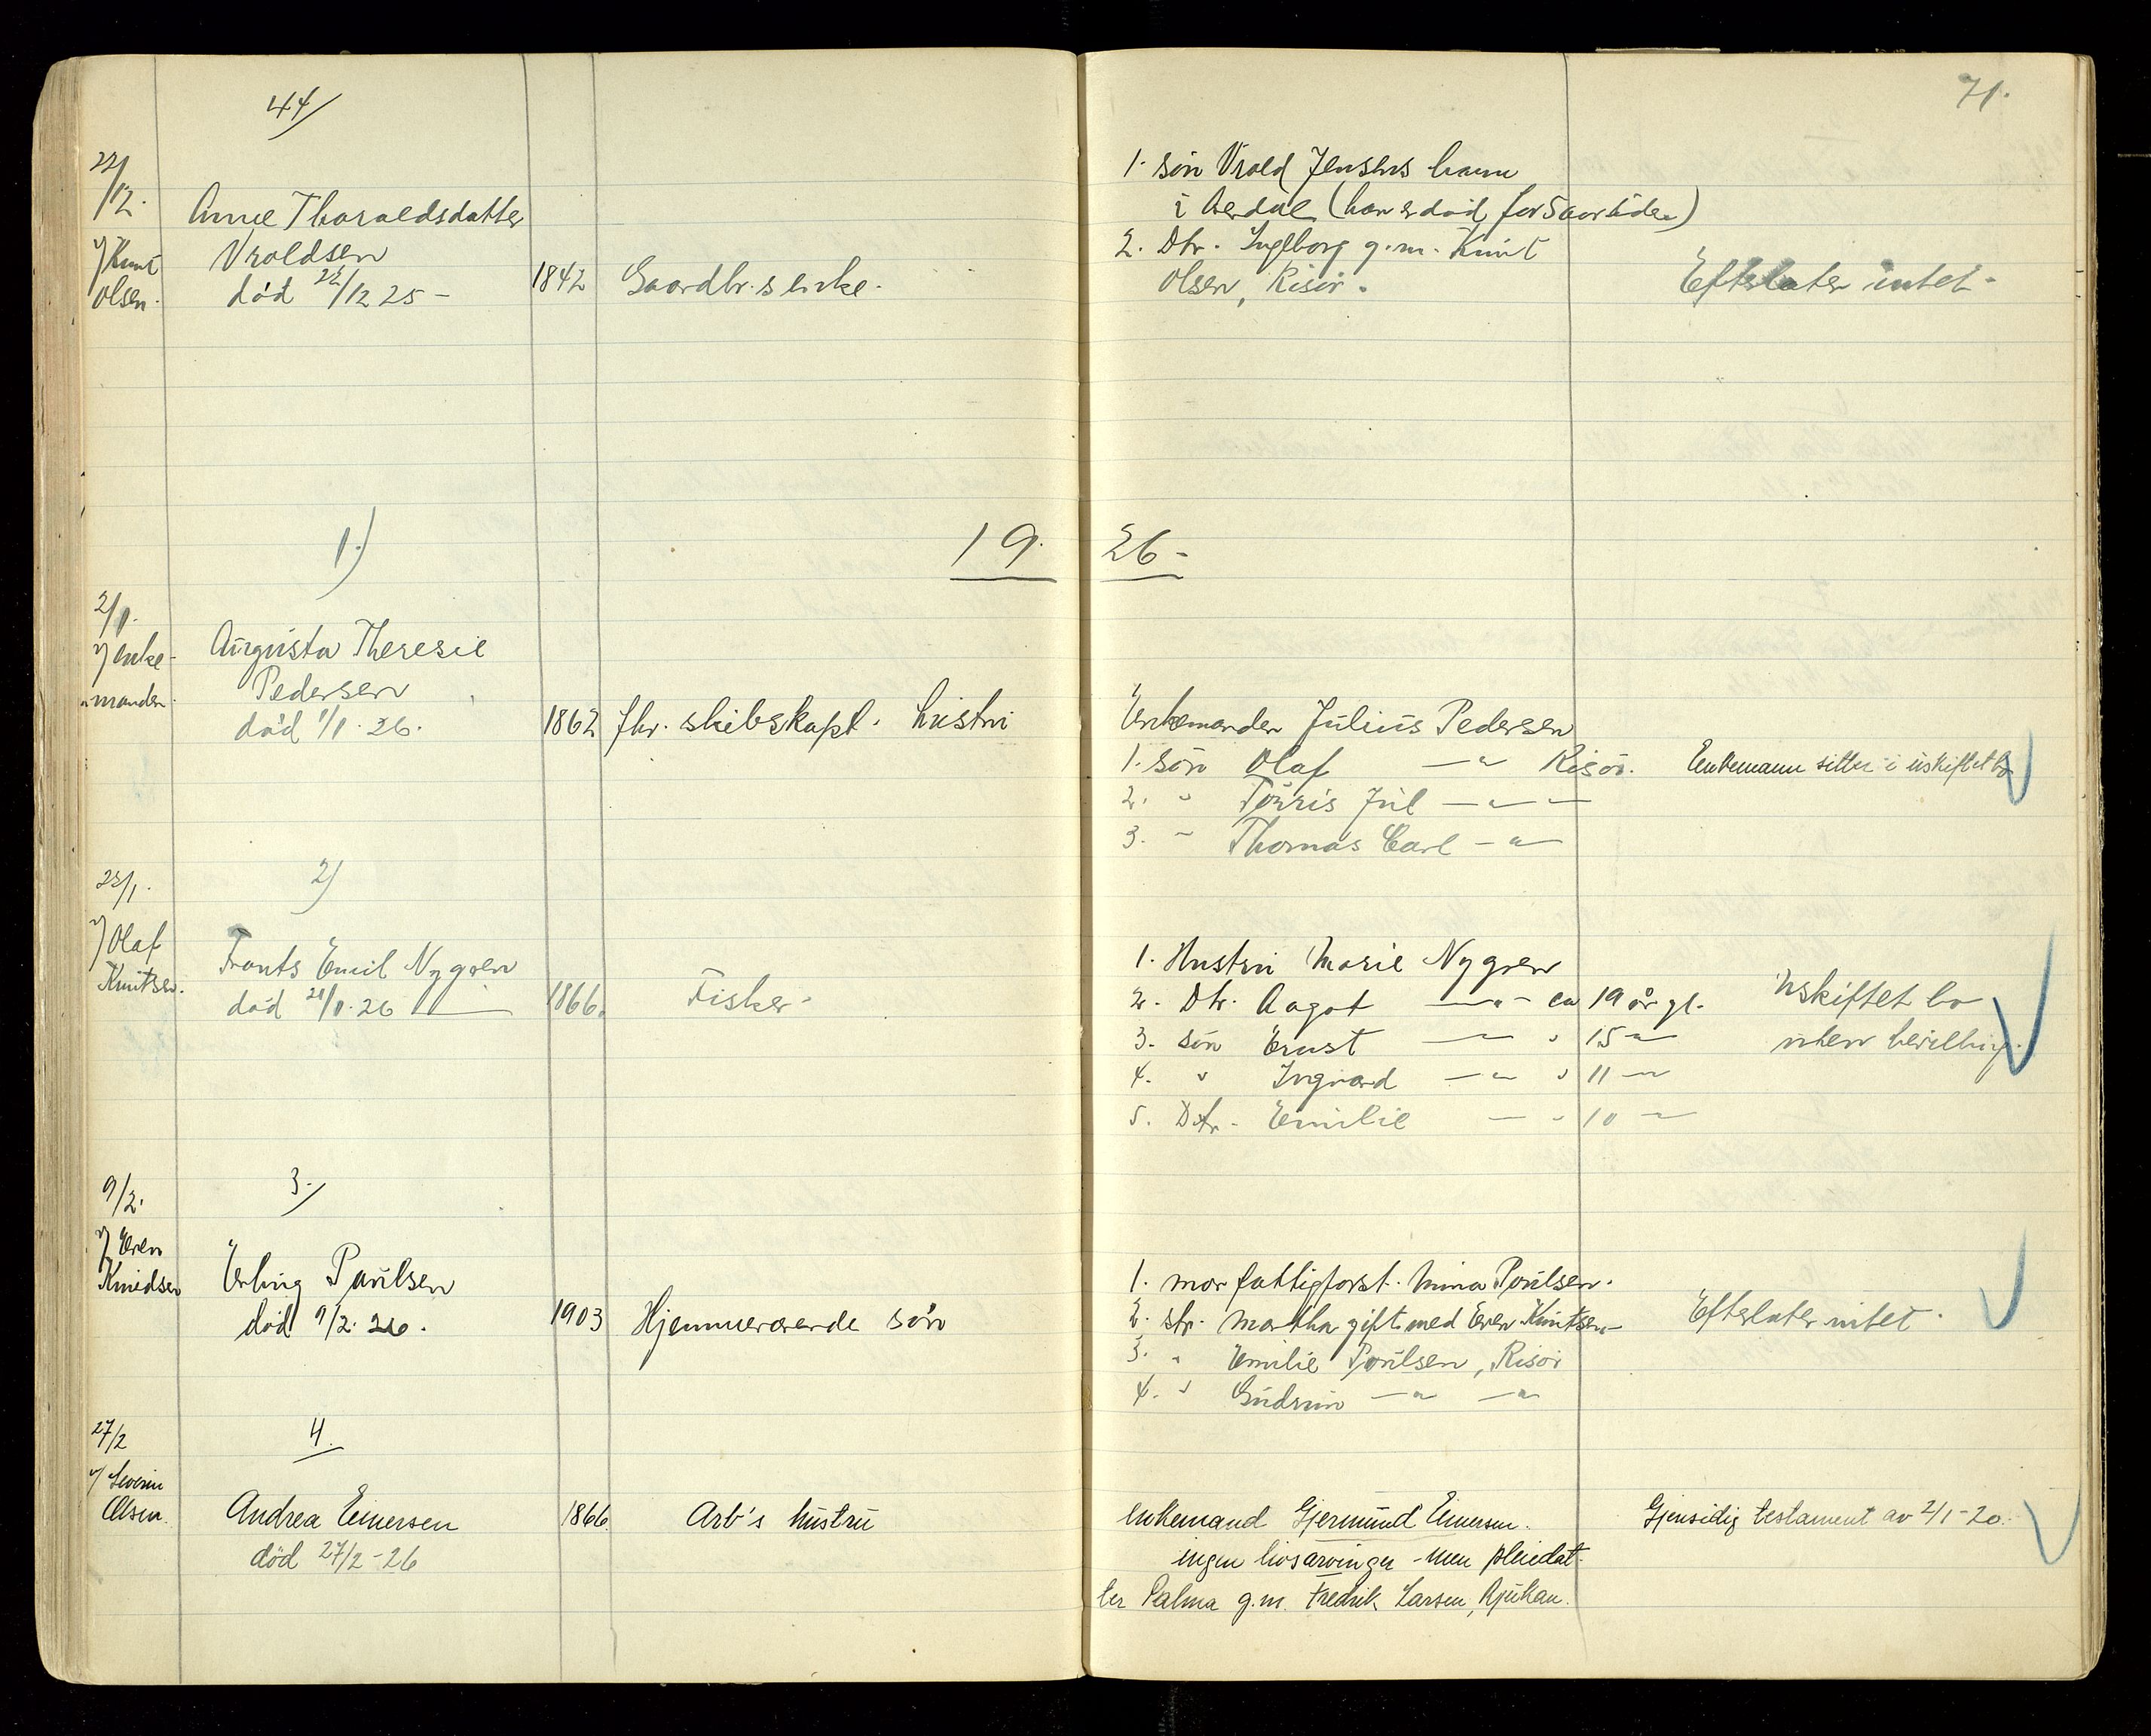 71.
44/
22/12.
v/ Knut
Olsen.
Anne Tharaldsdatter
Vroldsen
död 22/12 25 -
1842
Gaardbr.s enke.
1. sön Vrold Jensens barn
i Aerdal (han er död for 5 aar siden)
2. Dtr. Ingeborg g.m. Knut
Olsen, Risör.
Efterlater intet.
19 26 -
1.)
2/1.
v/ enke-
manden
Augusta Theresie
Pedersen
död 1/1. 26.
1862
fhv. skibskapt. hustru
Enkemanden Julius Pedersen
1. sön Olaf —"— Risör.
2. " Törris Jul —"—
3. " Thomas Carl —"—
Enkemann sitter i uskiftet bo
2)
22/1.
v/ Olaf
Knutsen.
Frants Emil Nygren
död 21/1. 26
1866.
Fisker.
1. Hustru Marie Nygren
2. Dtr. Aagot —"— ca 19 år gl.
3. sön Ernst —"— " 15 —"—
4. " Ingvard —"— " 11 —"—
5. Dtr. Emilie —"— " 10 —"—
Uskiftet bo
uten bevilling.
3./
9/2.
v/ Even
Knudsen
Erling Paulsen
död 9/2. 26.
1903
Hjemmeværende sön
1. mor fattigforst. Mina Paulsen.
2. str. Martha gift med Even Knutsen
3. " Emilie Paulsen, Risör
4. " Gudrun —"— —"—
Efterlater intet.
4.
27/2
v/ Severin
Olsen
Andrea Einersen
död 27/2 - 26
1866.
Arb's hustru
enkemand Gjermund Einersen.
ingen livsarvinger - men pleiedat-
ter Palma g.m. Fredrik Larsen, Rjukan.
Gjensidig testament av 2/1 - 20.